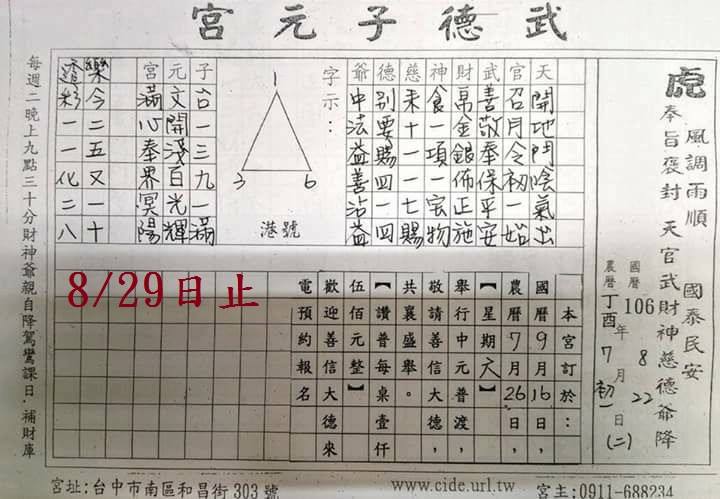 武德子元宮
虎
風調雨順 國泰民安
奉旨褒封 天官武財神慈德爺降
國曆 106 年 8 月 22 日(二)
農曆丁酉 7 初一
天開地門陰氣出
官召月令初一始
武善敬奉保平安
財帛金銀佈正施
神食一項一宝物
慈耒十一一七賜
德别要賜四一四
爺中法益善沾益
字示：
1
3
6
港號
子台一三九一滿
元文開淺百光輝
宮滿心奉界冥陽
樂今二五又一十
透彩一一化二八
本宮訂於：
國曆9月16日，
農曆7月26日，
【星期六】
舉行中元普渡，
敬請善信大德，
共襄盛舉。
【讚普每桌壹仟
伍佰元整】
歡迎善信大德來
電預約報名
8/29日止
每週二晚上九點三十分財神爺親自降駕鸞課日．補財庫
宮址:台中市南區和昌街303號
www.cide.url.tw
宮主:0911-688234